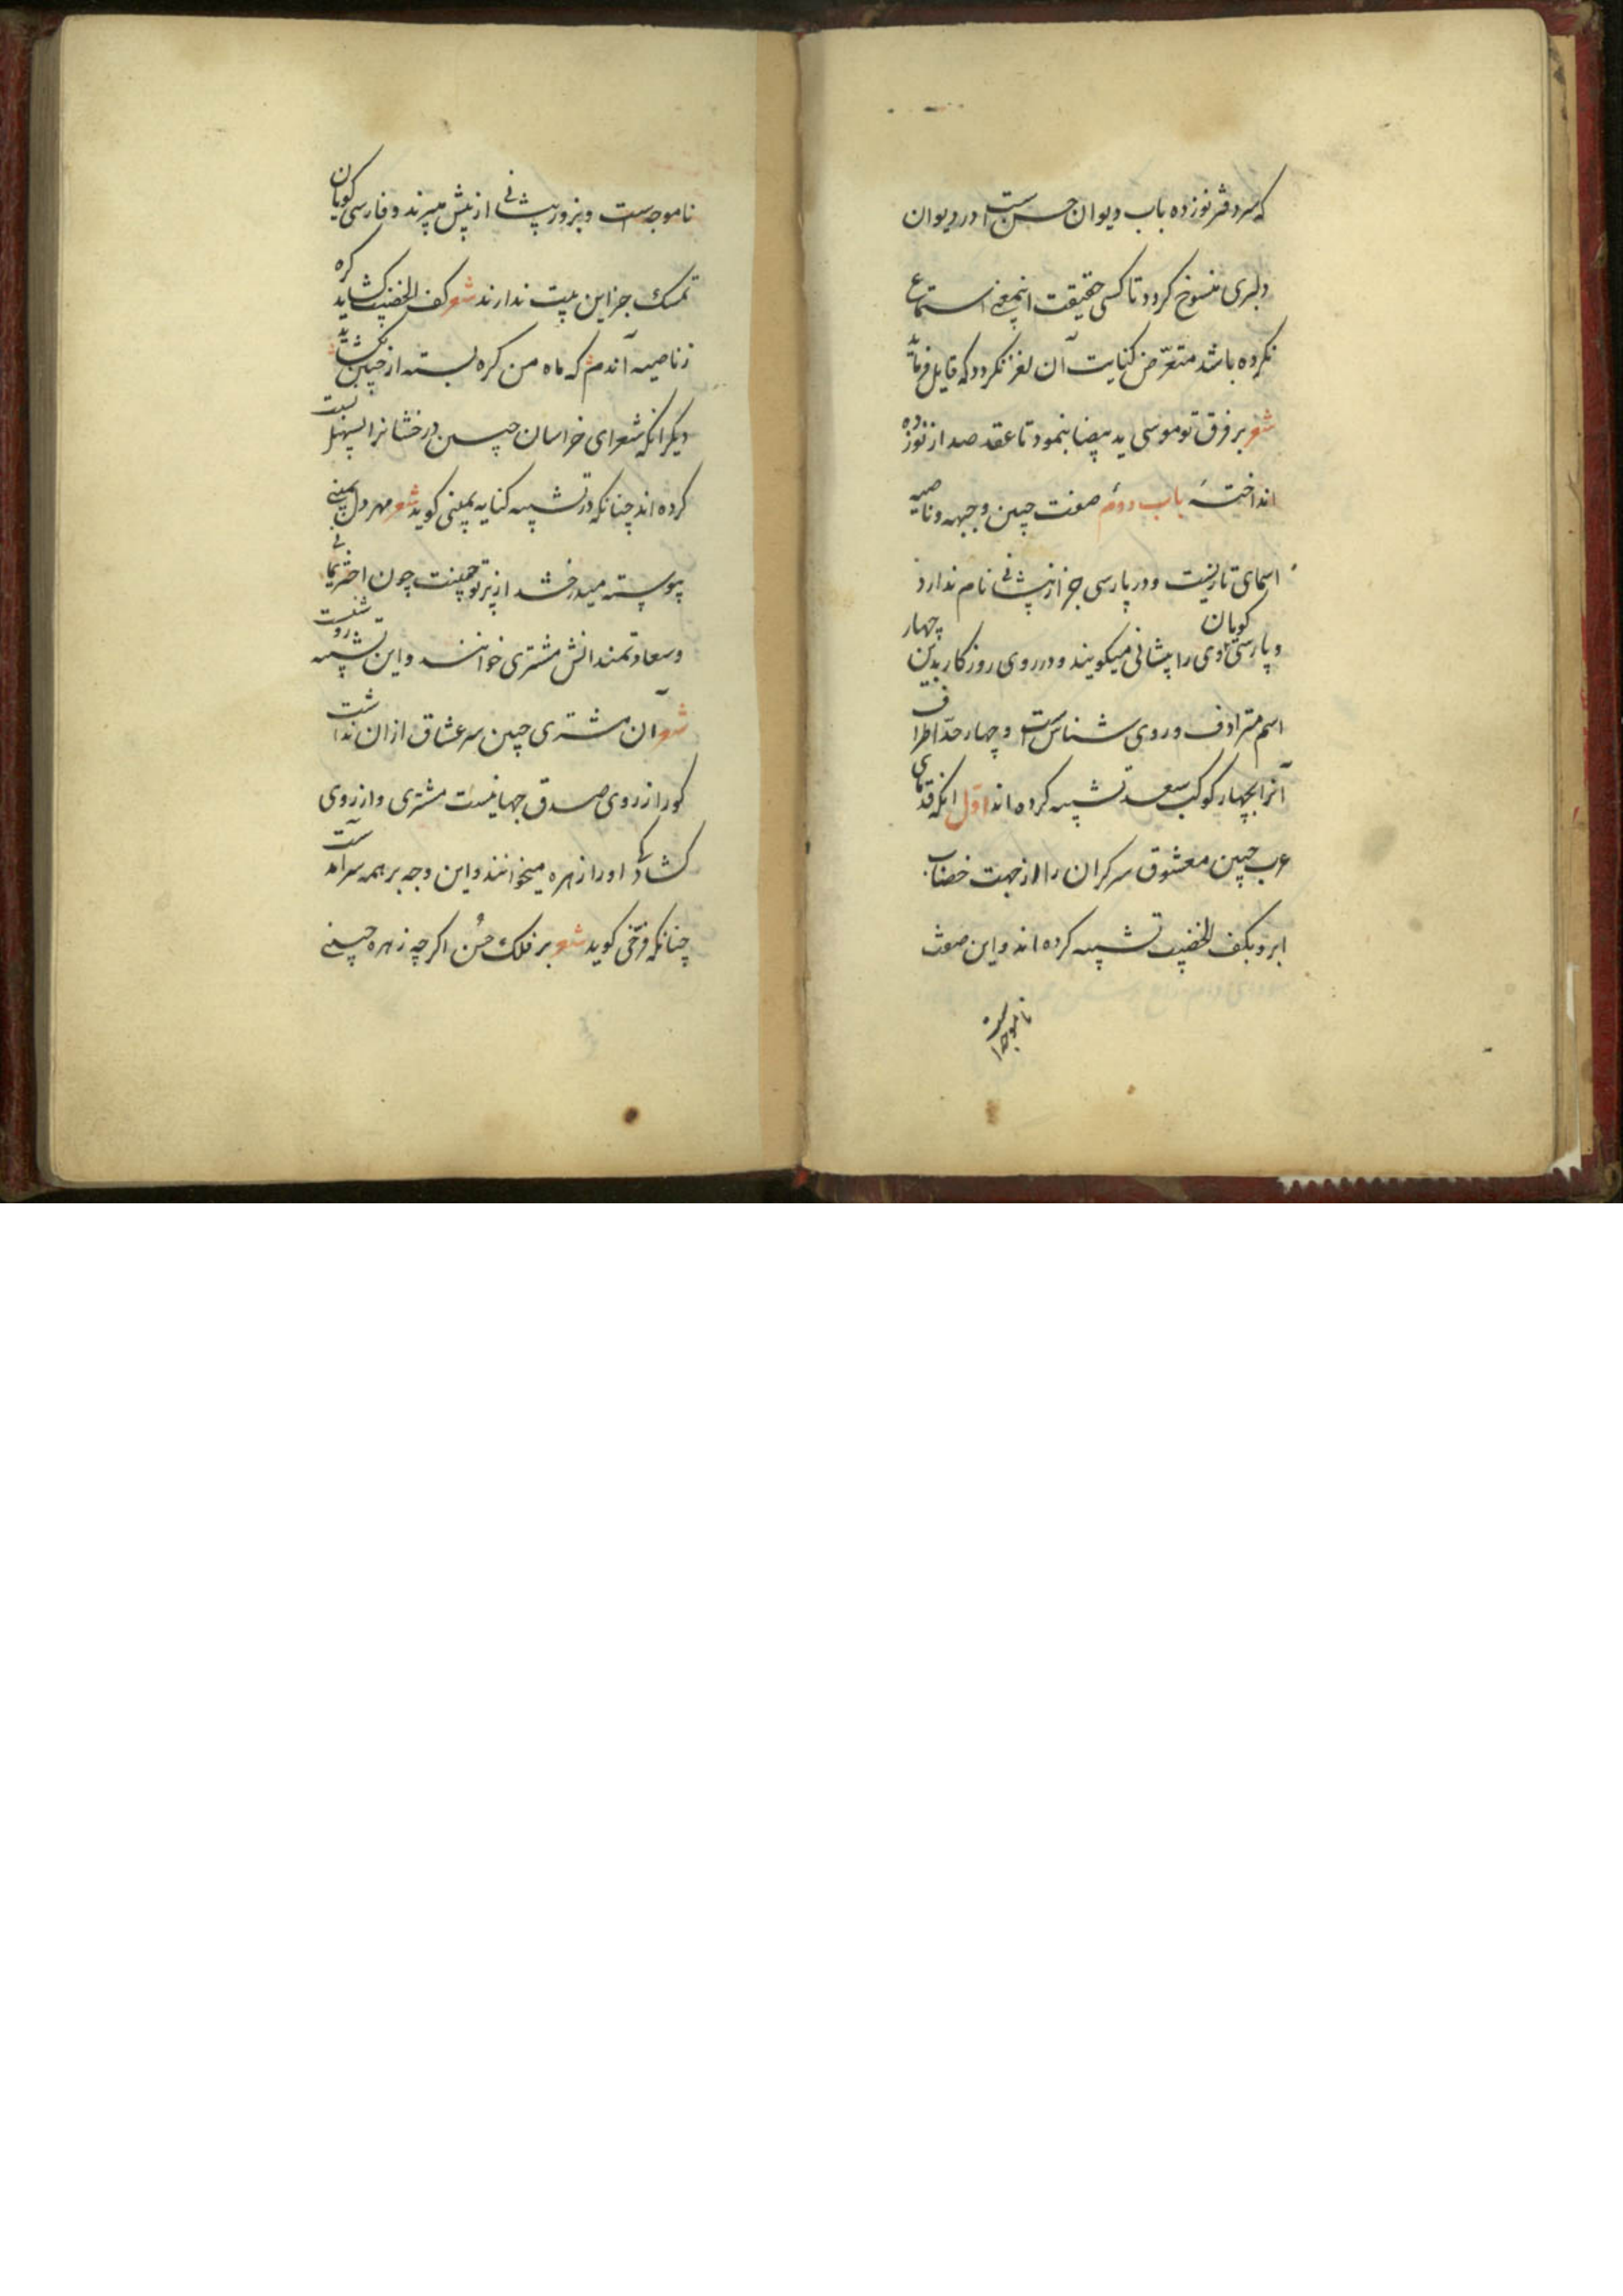 که سر دفتر نوزده باب دیوان حسن است در دیوان
دلبری منسوخ کردد تا کسی حقیقت اینمعنی استماع
نکرده باشد متعرّض کنایت آن لغز نکردد که قایل فرماید
شعر بر فرق تو موسی ید بیضا بنمود تا عقد صد از نوزده
انداختهٔ باب دوم صفت جبین و جبهه و ناصیه
اسمای تازیست و در پارسی جز از پیشانی نام ندارد
و پارسی کویان وی را پیشانی میکویند و در روی روزکار بدین چهار
اسم مترادف و روی شناس است و چهار حدّ اطراف
آنرا بچهار کوکب سعد تشبیه کرده اند اوّل انکه قدمای
عرب جبین معشوق سرکران را از جهت خضاب
ابرو بکف الخضیب تشبیه کرده اند و این صفت
ناموجه است
ناموجه است و بزور پیشانی از پیش میبرند و فارسی کویان
تمسک جز این بیت ندارند شعر کف الخضیب کشاید کره
ز ناصیه آندم که ماه من کره بسته از جبین بکشاید
دیکر انکه شعرای خراسان جبین درخشانرا بسهیل نسبت
کرده اند چنانکه در تشبیه کنایه یمینی کوید شعر مهر دل یمینی
پیوسته میدرخشد از پرتو جبینت چون اختر یمانی
و سعادتمندانش مشتری خوانند و این تشبیه روشنست
شعر آن مشتری جبین سر عشاق از ان نداشت
کورا ز روی صدق جهانیست مشتری و از روی
کشادکی او را زهره میخوانند و این وجه بر همه سرآمدست
چنانکه فرّخی کوید شعر بر فلک حسن اکرچه زهره جبینی